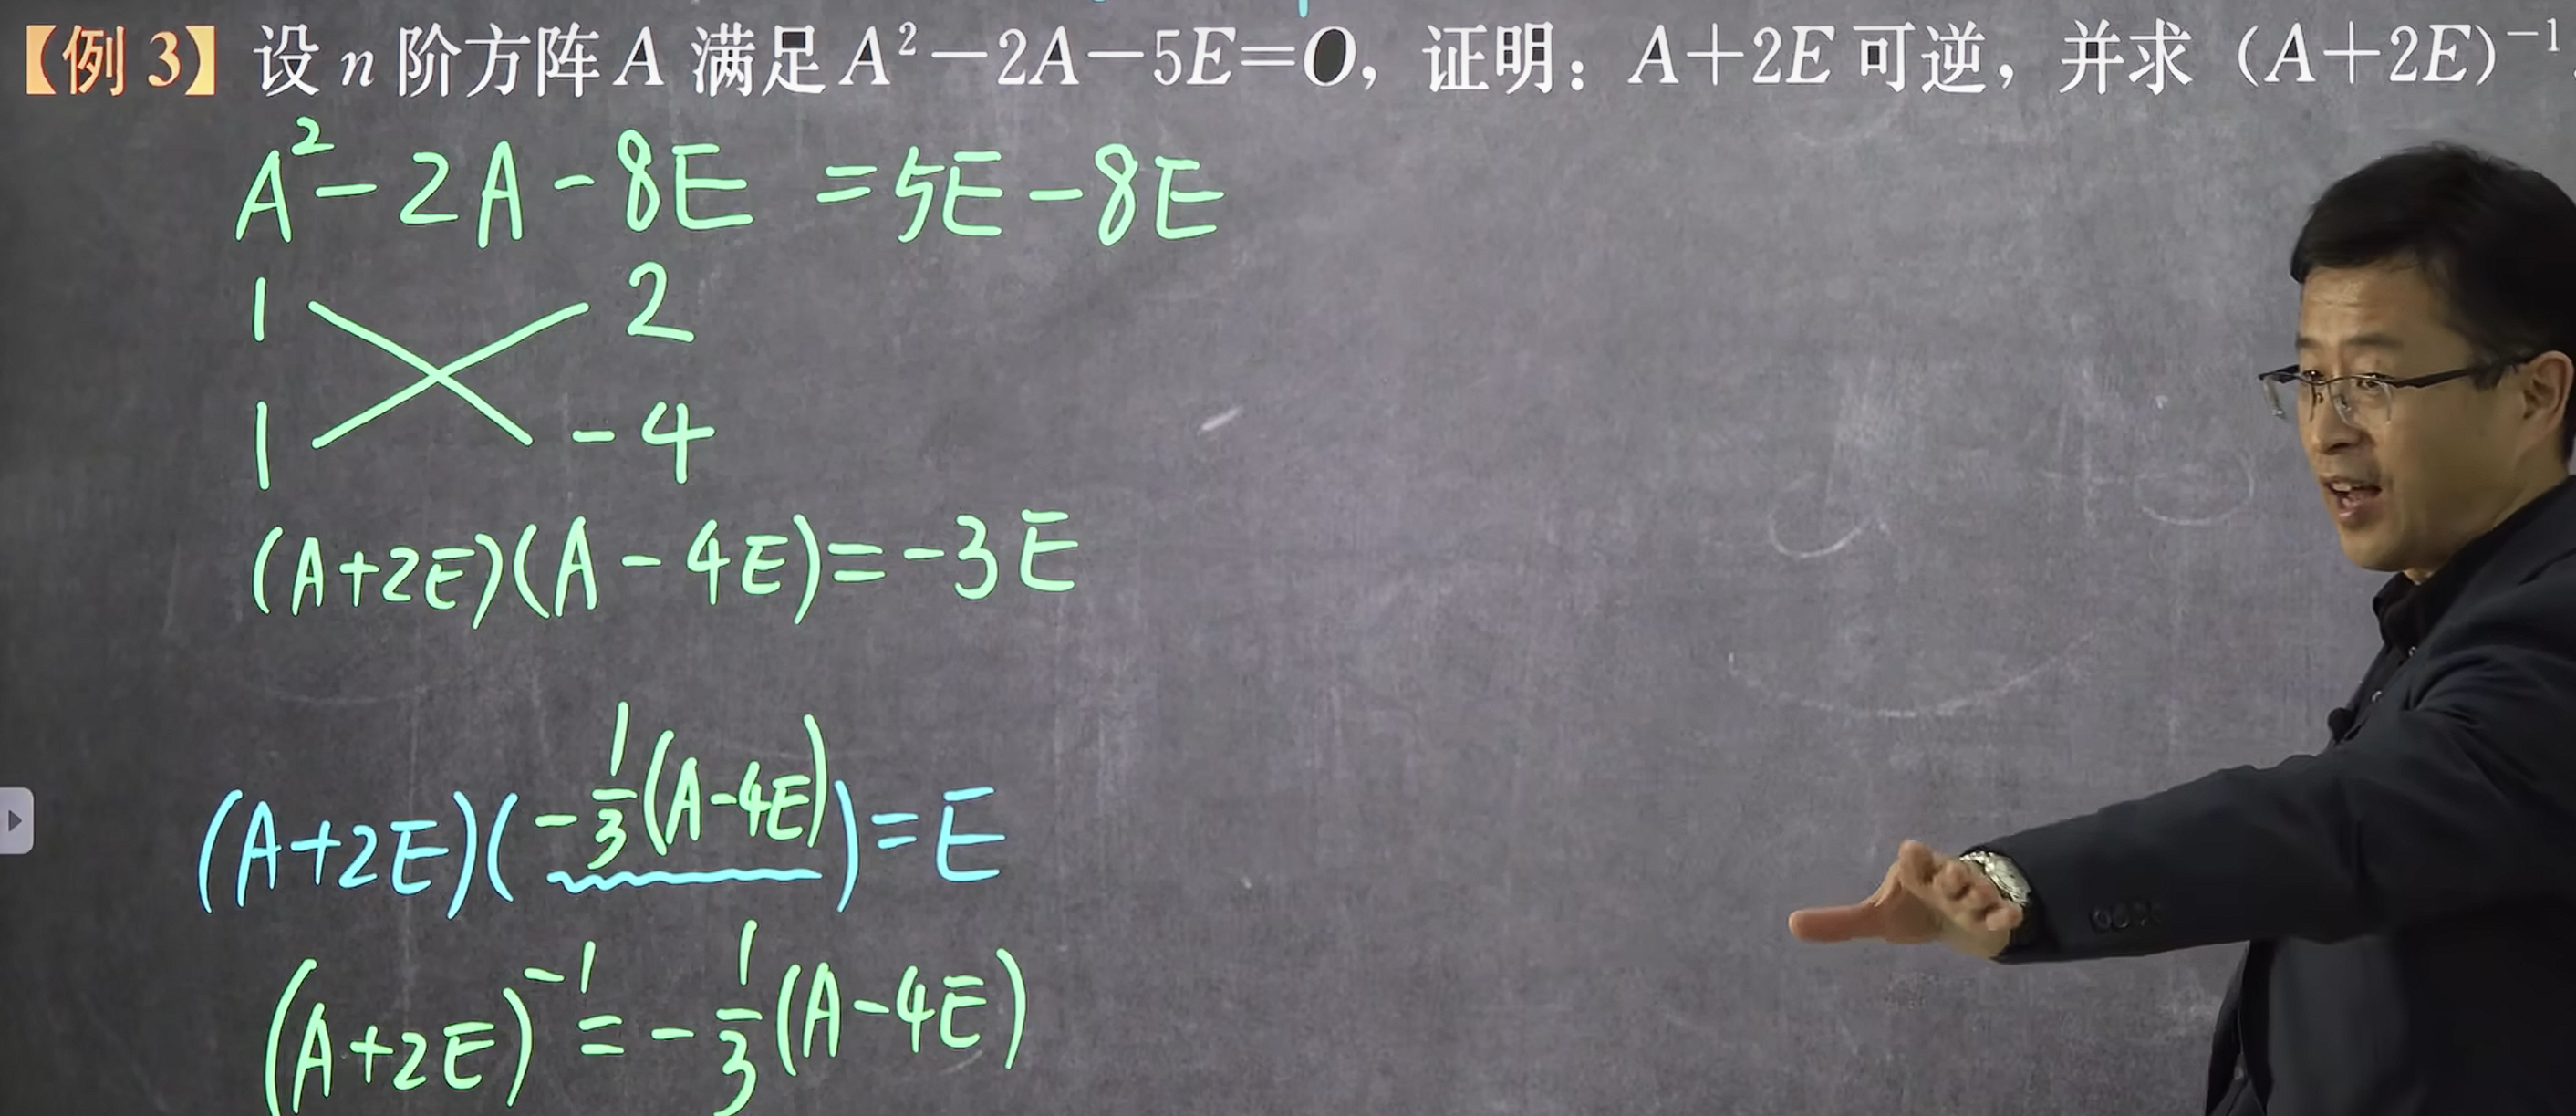 【例 3】设 n 阶方阵 A 满足 A²－2A－5E＝O，证明：A＋2E 可逆，并求（A＋2E）⁻¹
A²-2A-8E =5E-8E
1 2
1 -4
(A+2E)(A-4E)=-3E
(A+2E)(-1/3(A-4E))=E
(A+2E)⁻¹=-1/3(A-4E)